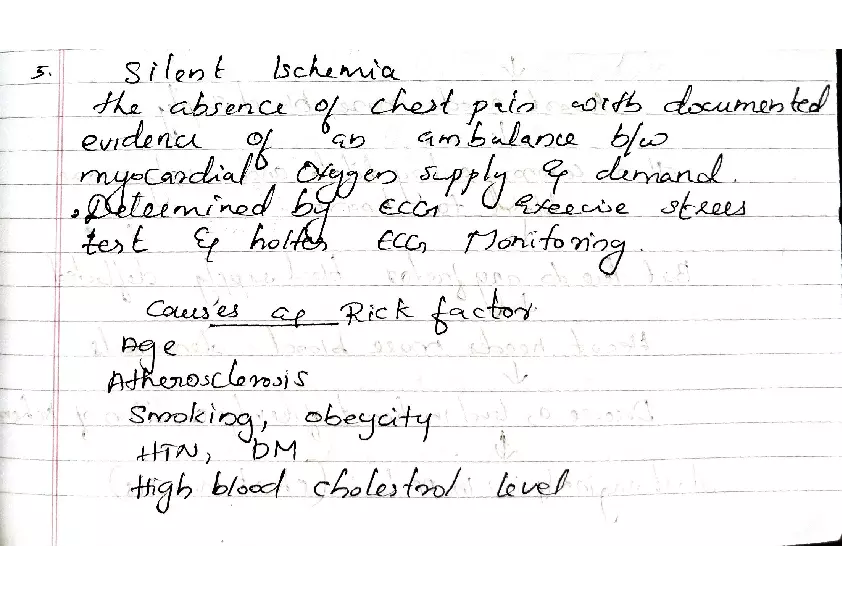 5. Silent Ischemia
the absence of chest pain with documented
evidence of an ambalance b/w
myocardial Oxygen supply & demand.
. Determined by ECG Exercise stress
test & holter ECG Monitoring.
Causes as Rick factor
Age
Atherosclerosis
Smoking, obeycity
HTN, DM
High blood cholestrol level